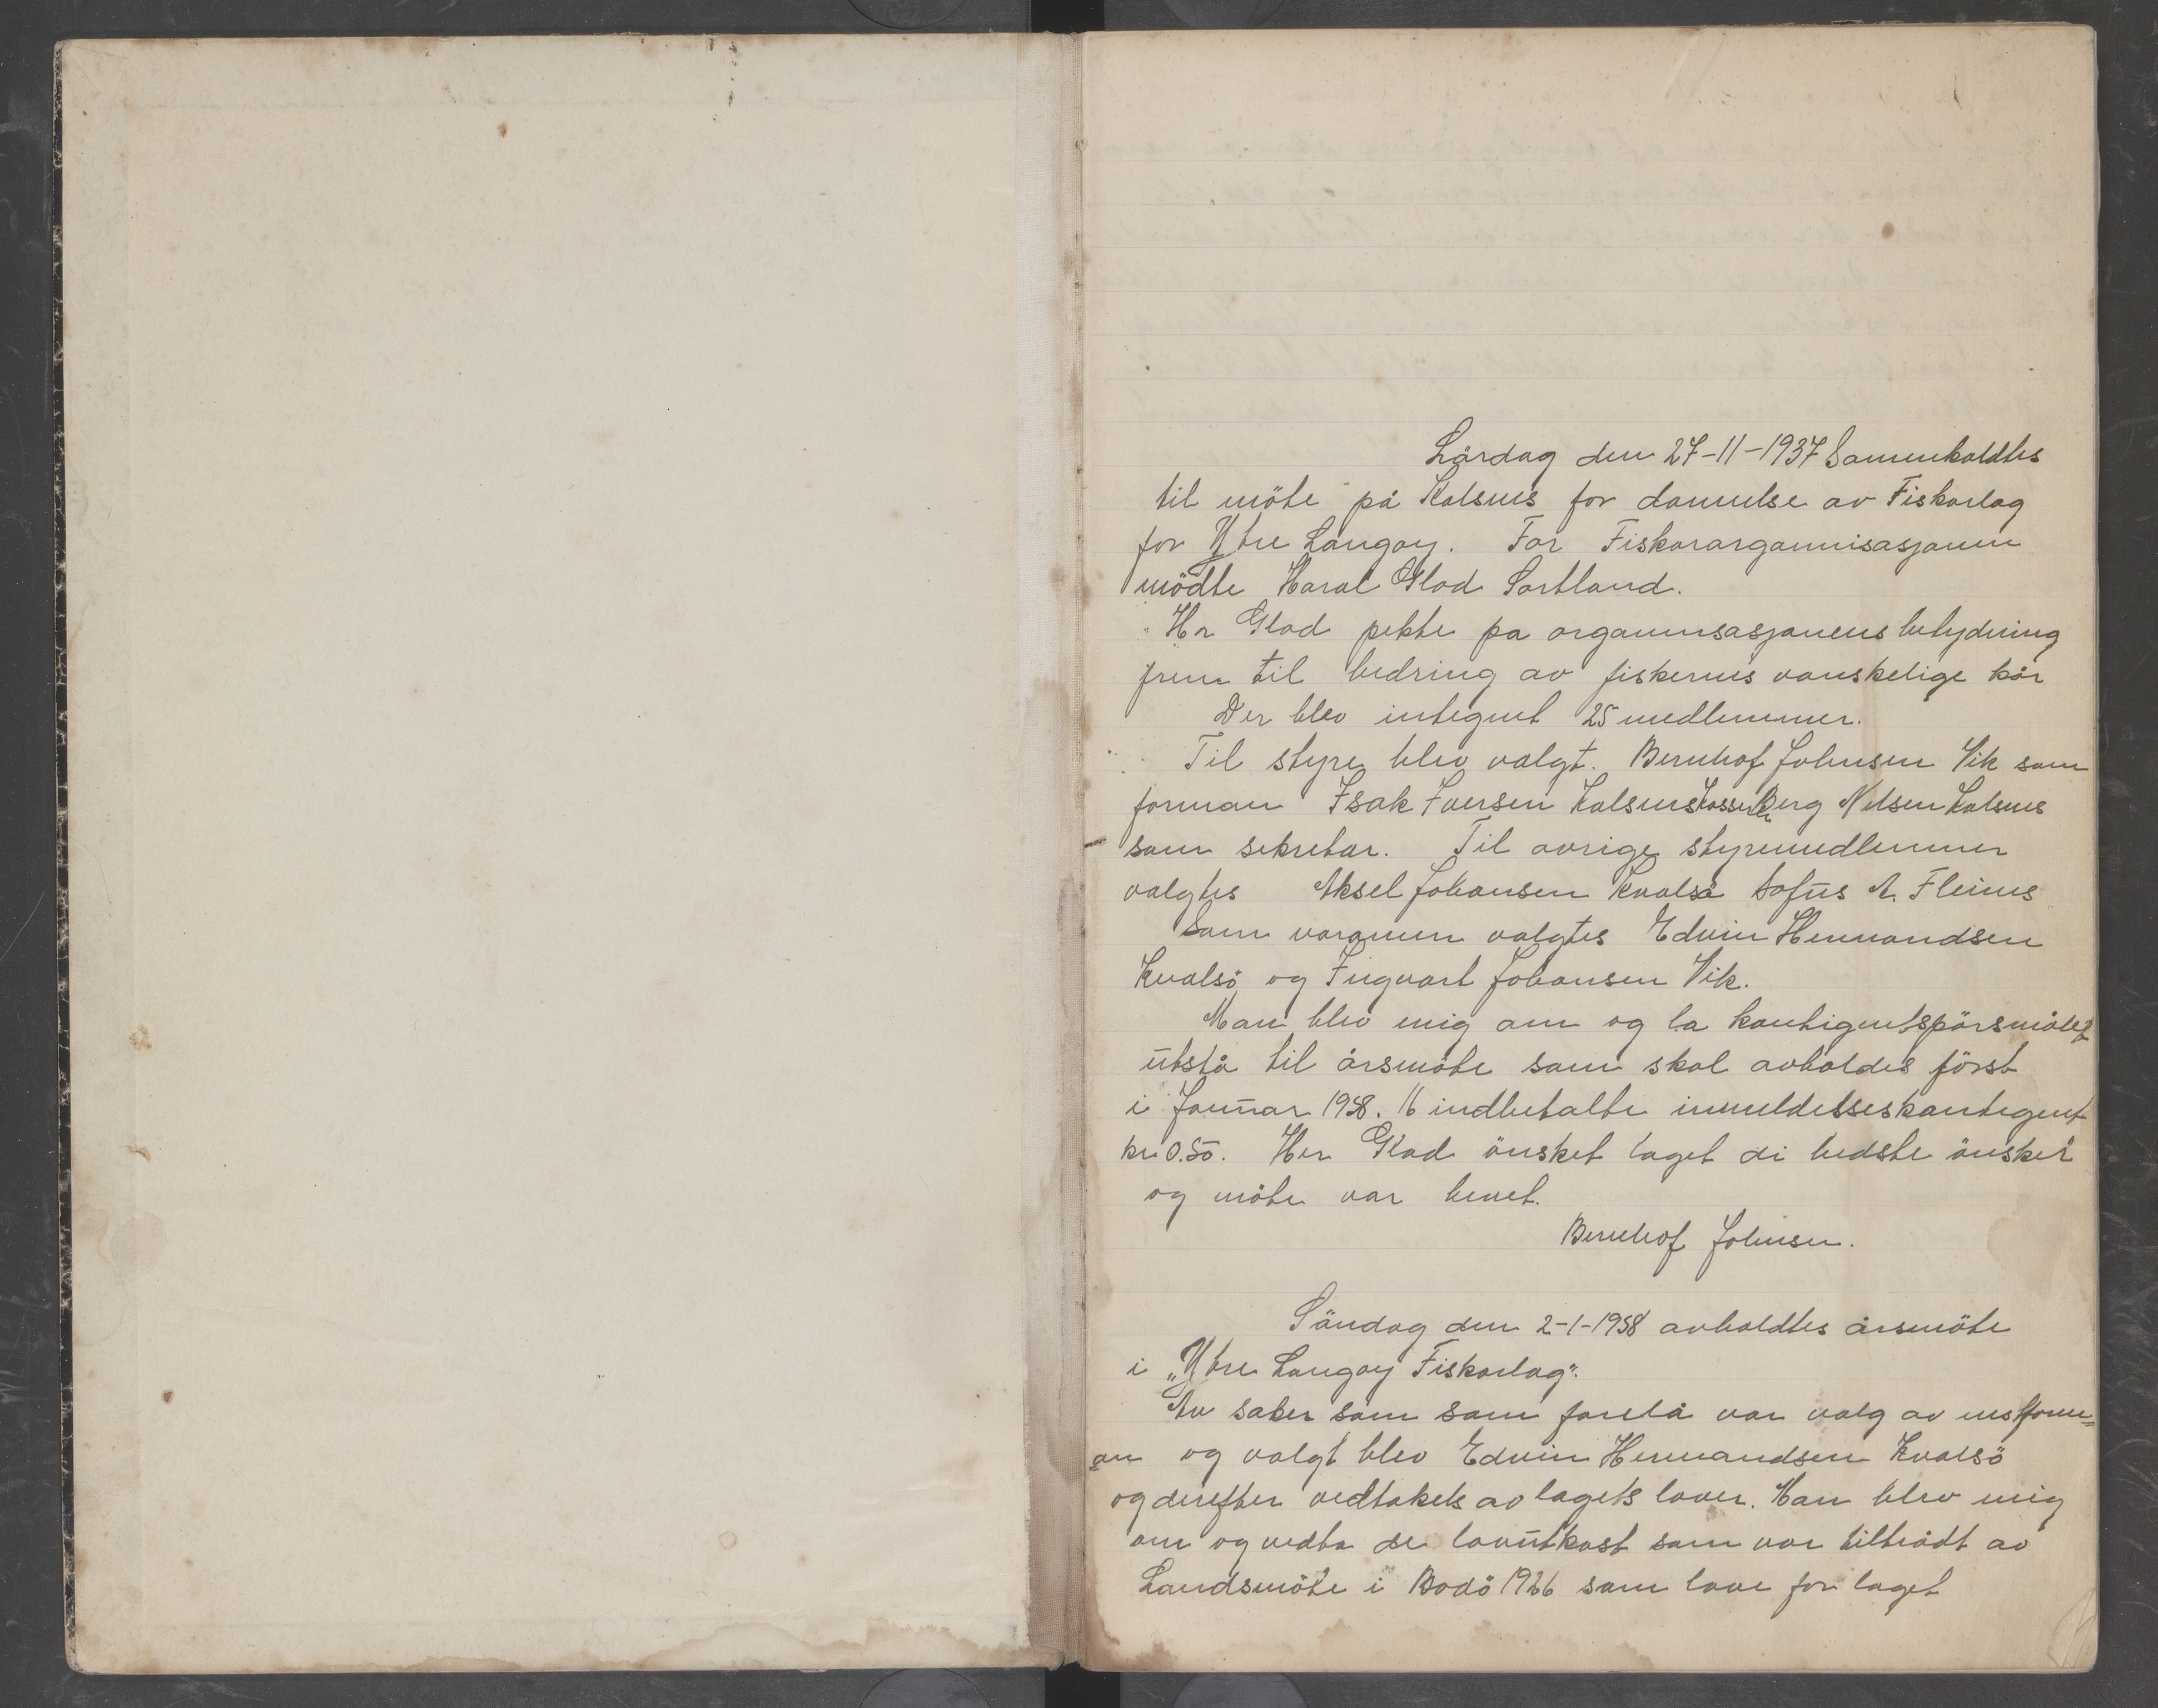 Lördag den 27-11-1937 Sammenkaldtes
til möte på Kalsnes for dannelse av Fiskarlag
for Ytre Langøy. For Fiskarorgannisasjonen
mödte Haral Glad Sortland.
Hr Glad pekte på organnisasjonens betydning
frem til bedring av fiskernes vanskelige kår
Der blev integnet 25 medlemmer.
Til styre blev valgt. Bernhof Johnsen Vik som
forman Isak Iversen Kalsnes Kasserer Berg Nilsen Kalsnes
som sekretær. Til øvrige styremedlemmer
valgtes Aksel Johansen Kvalsö Sofus A. Fleines
Som varamen valgtes Edvin Hermandsen
Kvalsö og Ingvart Johansen Vik.
Man blev enig om og la kontigentspörsmålet
utstå til årsmöte som skal avholdes först
i Januar 1938. 16 indbetalte inmeldelseskontigent
kr 0.50. Her Glad önsket laget di bedste önsker
og möte var hevet.
Bernhof Johnsen.
Söndag den 2-1-1938 avholdtes årsmöte
i „Ytre Langøy Fiskarlag".
Av saker som som forelå var valg av nestform=
an og valgt blev Edvin Hermandsen Kvalsö
og derefter vedtakels av lagets lover. Man blev enig
om og vedta de lovutkast som var tiltrådt av
Landsmöte i Bodö 1926 som love for laget